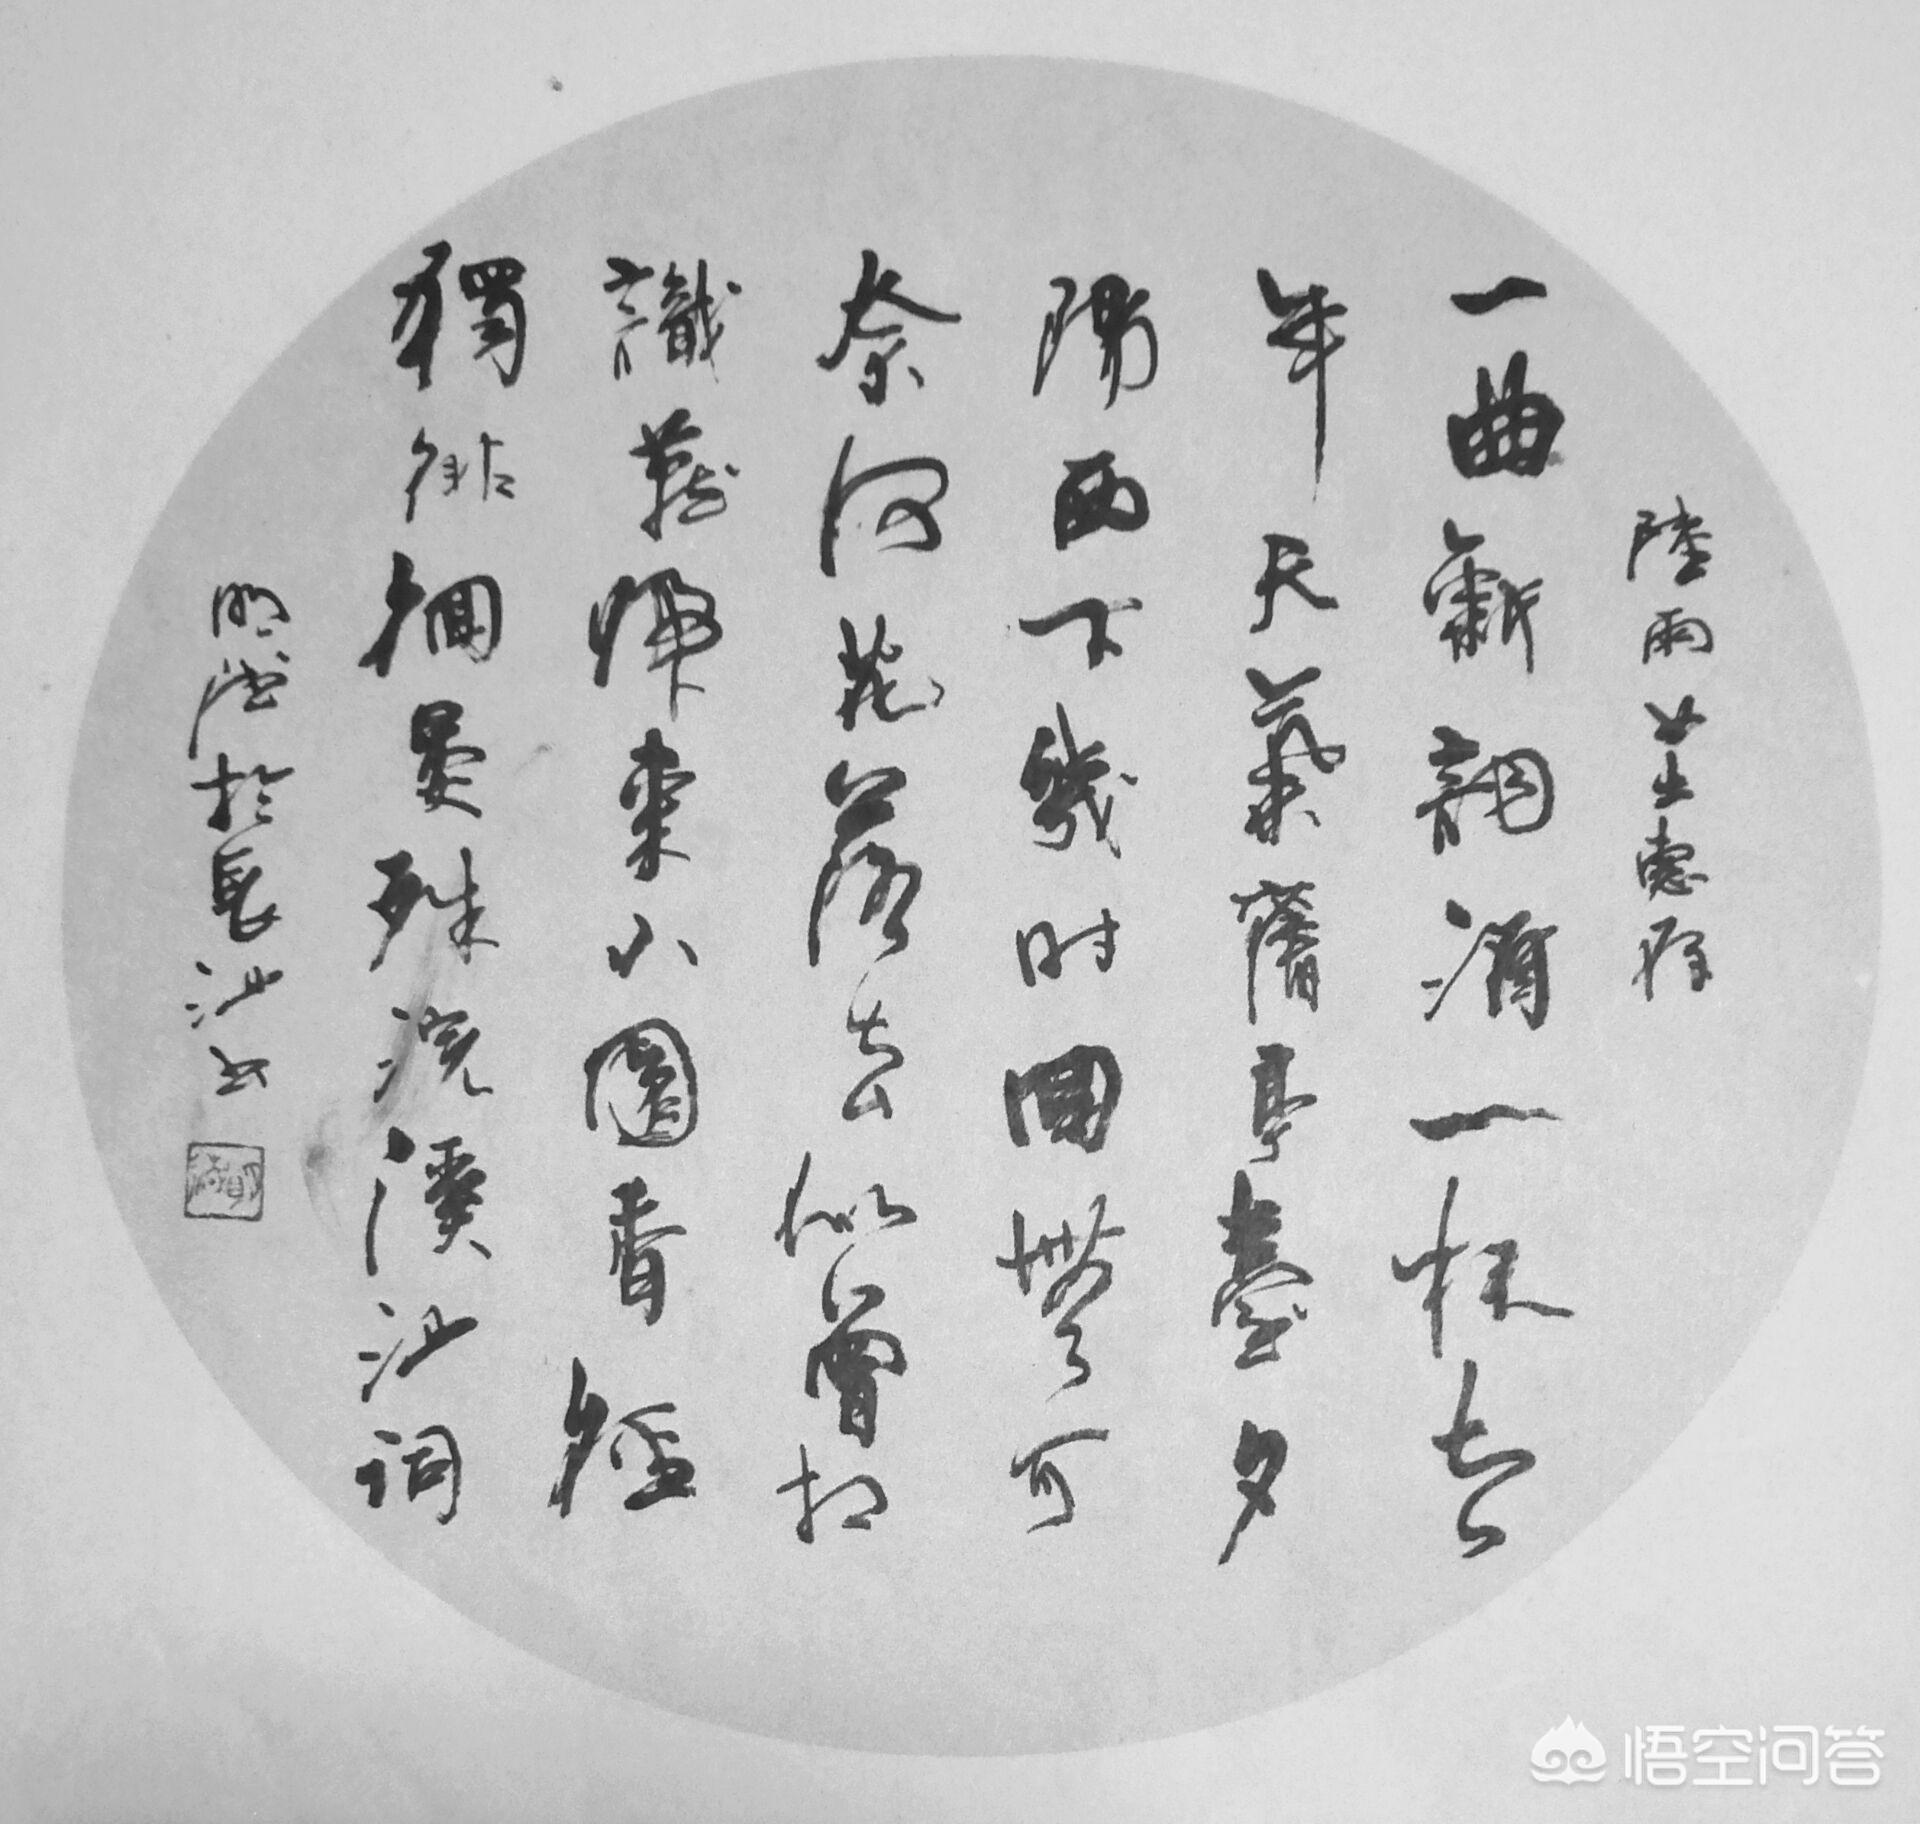 陸雨女士惠存
一曲新詞酒一杯去
年天氣舊亭臺夕
陽西下幾時回無可
奈何花落去似曾相
識燕歸來小園香徑
獨徘徊晏殊浣溪沙詞
於長沙書
悟空问答